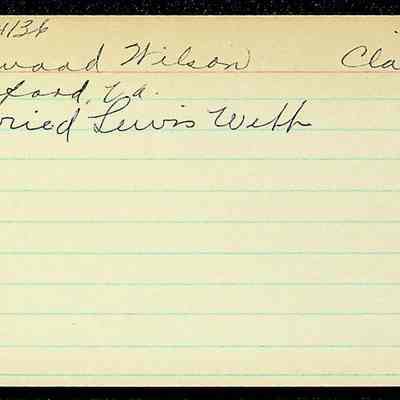 4136
wood Wilson Cla
ford, Va.
ried Lewis Webb